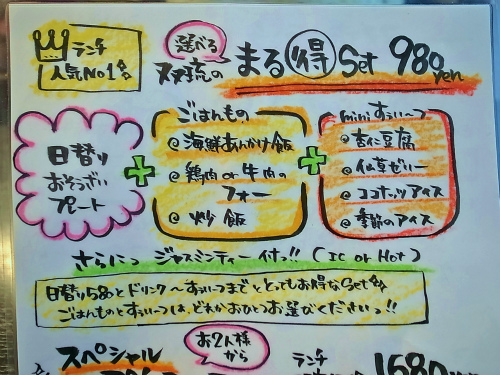 ランチ
人気No1
選べる
双琉の
まる得Set 980yen
日替り
おそうざい
プレート
+
ごはんもの
@海鮮あんかけ飯
@鶏肉or牛肉の
フォー
@炒飯
+
miniすぅぃ～つ
@杏仁豆腐
@仙草ゼリー
@ココナッツアイス
@季節のアイス
さらにっ ジャスミンティー付っ!! (Ic or Hot)
とドリンク～すぅぃつまでとってもお得なSet
ごはんものとすぅぃつは、どれかおひとつお選びくださいっ!!
お2人様
から
スペシャル
ランチ
1680